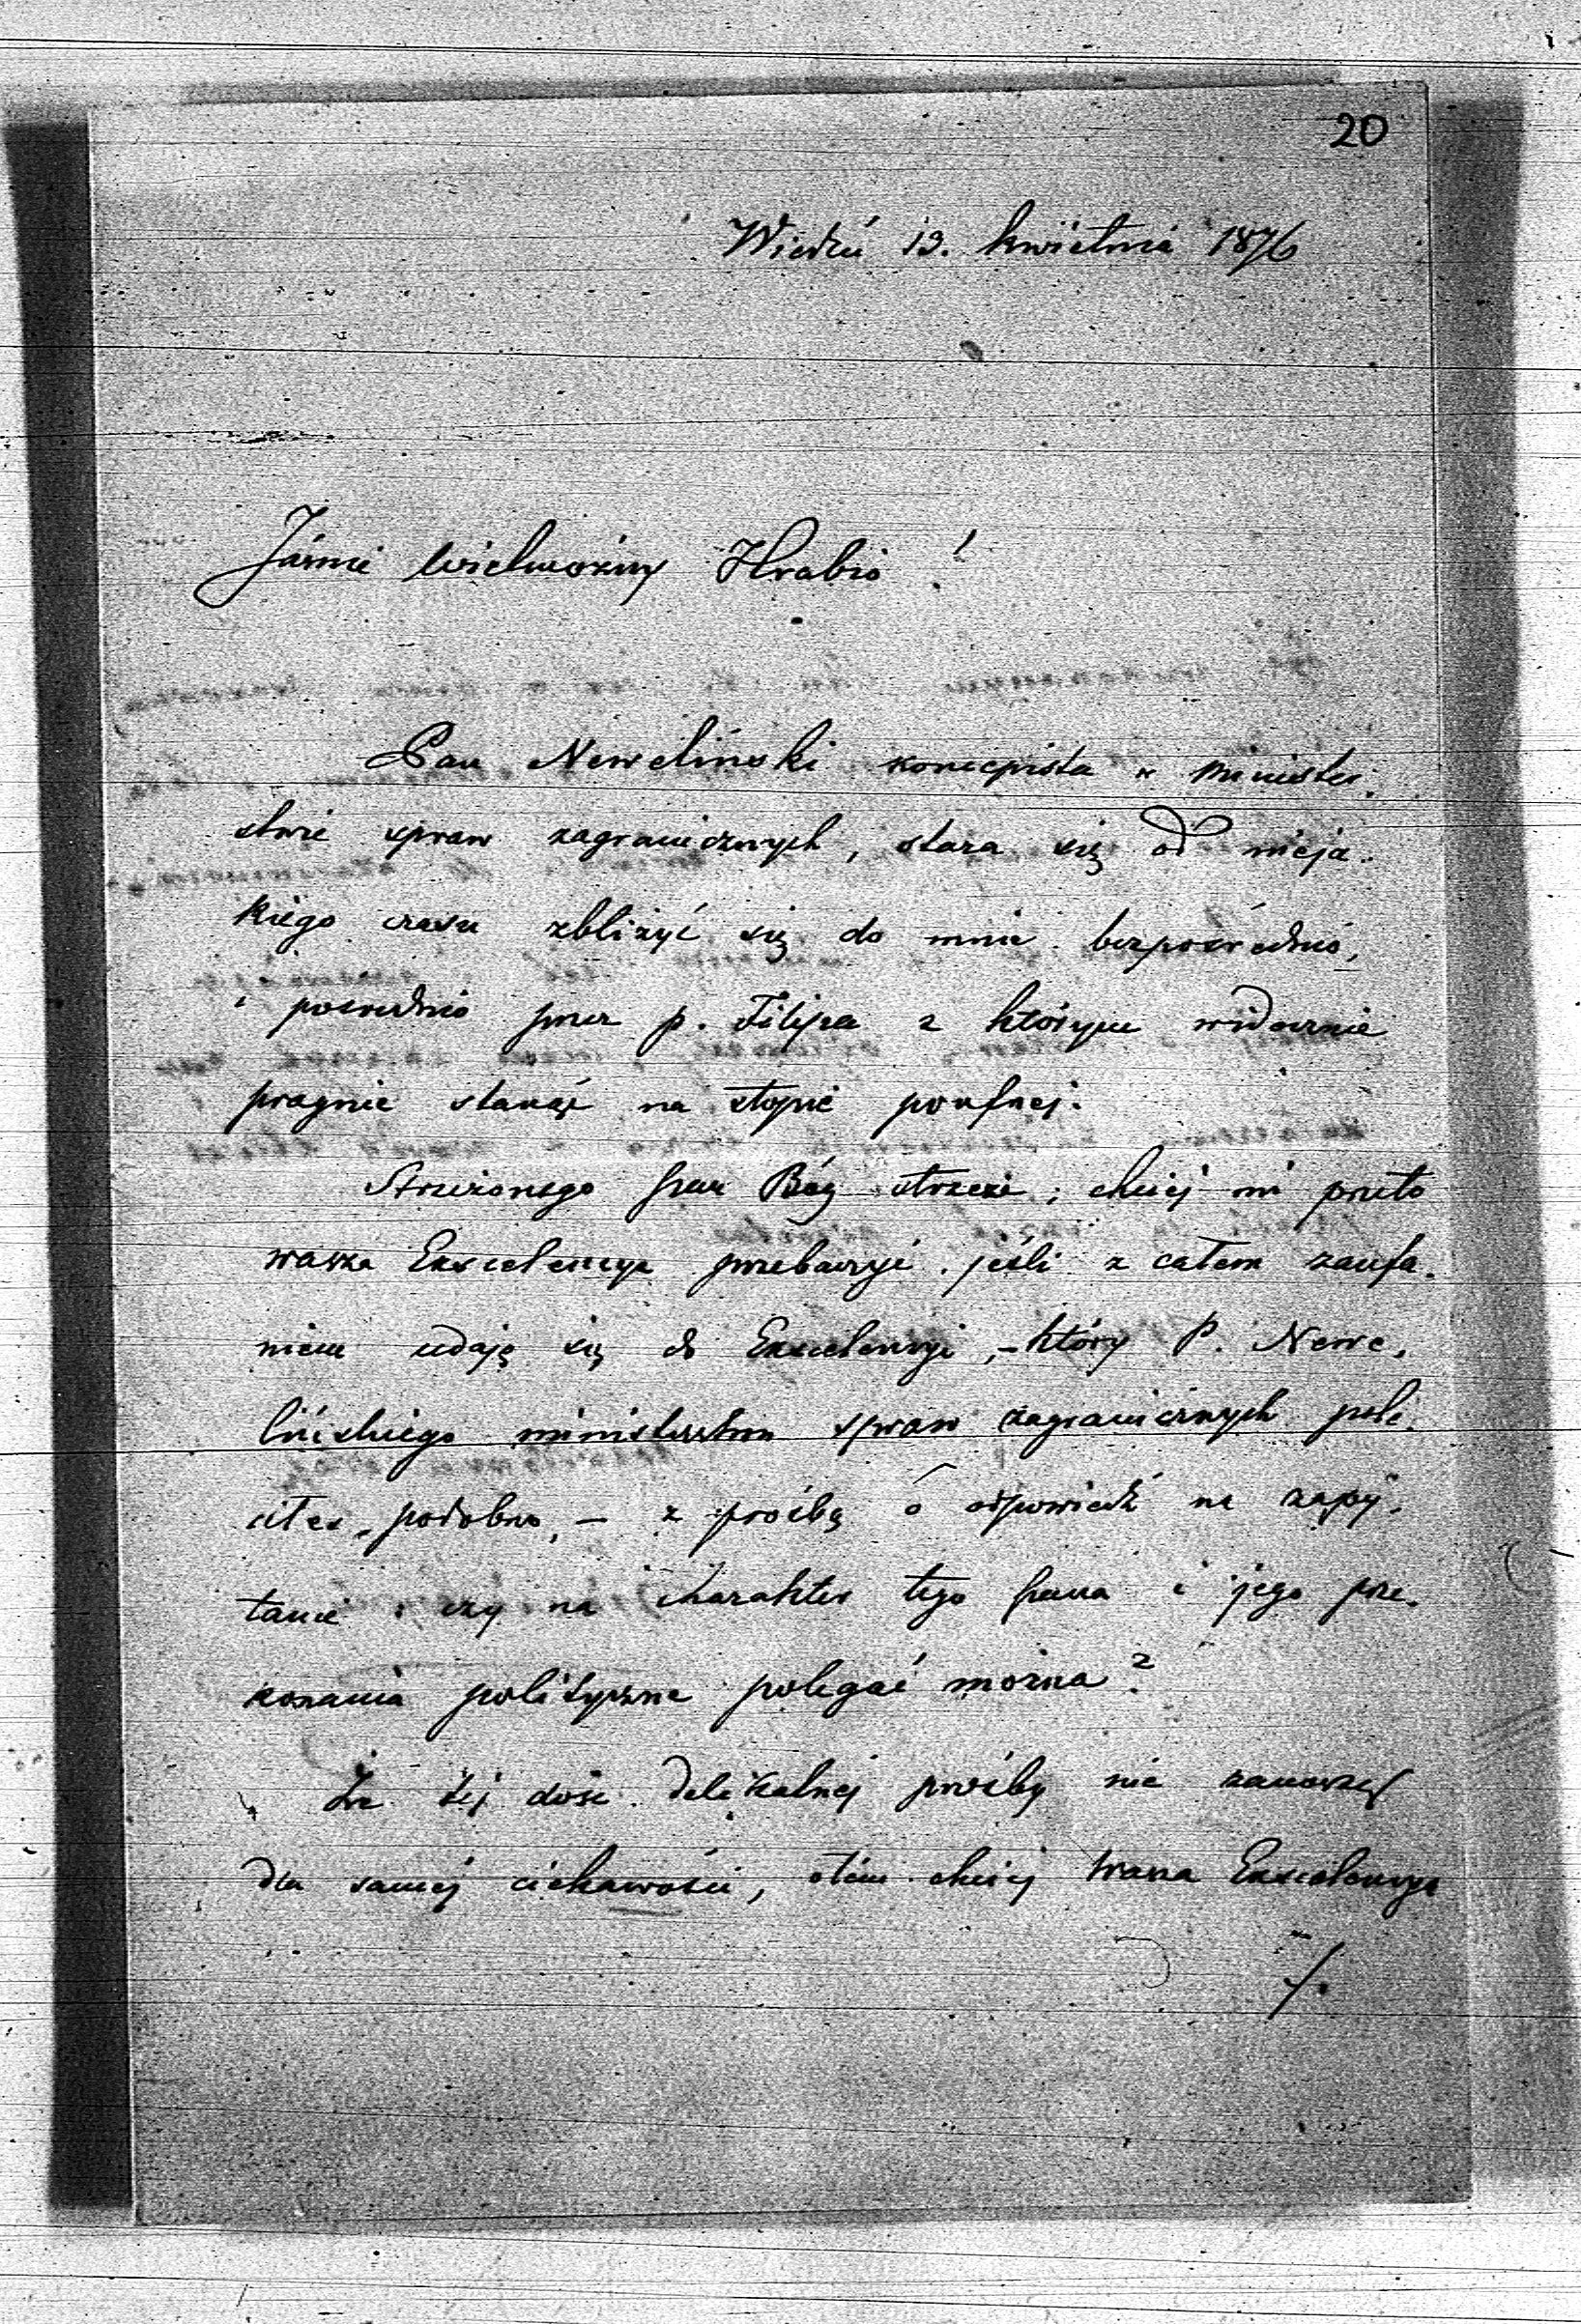 20
Wiedeń 19. kwietnia 1876
Jaśnie Wielmożny Hrabio!
Pan Neweliński koncepista w minister-
stwie spraw zagranicznych, stara się od nieja-
kiego czasu zbliżyć się do mnie bezpośrednio,
i pośrednio przez p. Filipa z którym widocznie
pragnie stanąć na stopie poufnej.
Strzeżonego Pan Bóg strzeże; chciej mi przeto
wasza Excelencya przebaczyć jeśli z całem zaufa-
niem udaję się do Excelencyi, – który P. Newe-
lińskiego ministerstwu spraw zagranicznych pole-
ciłeś podobno, – z prośbą o odpowiedź na zapy-
tanie: czy na charakter tego pana i jego prze-
konania polityczne polegać można?
Że tej dość delikatnej prośby nie zanoszę
dla samej ciekawości, o tém chciej Wasza Excelencya
/.